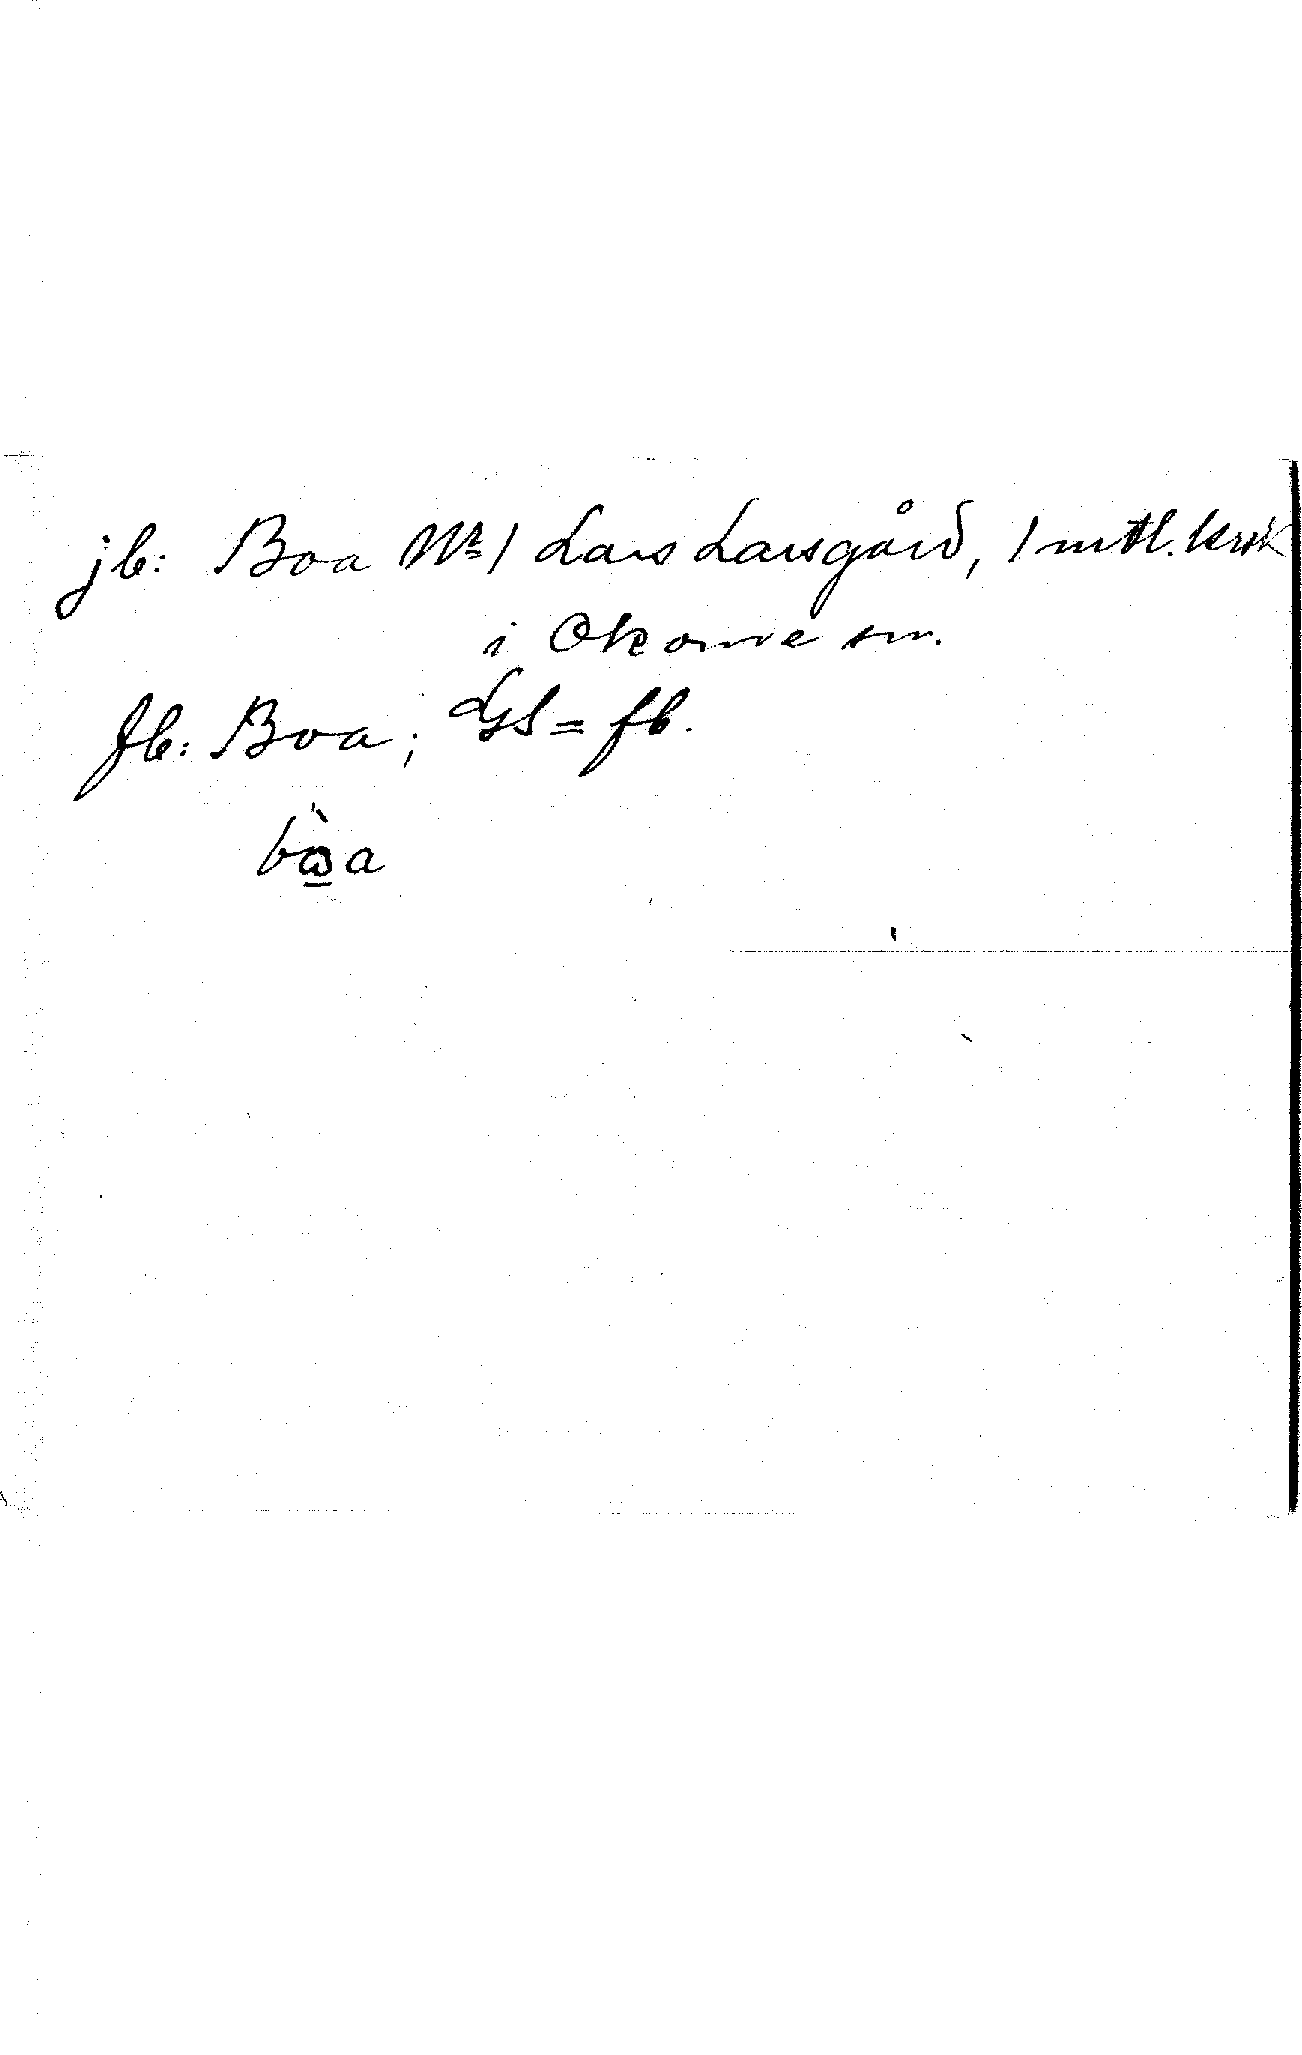 jb: Boa Nr 1 Lars Larsgård, 1 mtl. krsk
i Okome sn.
fb: Boa; LGS = fb.
bὼ̲a